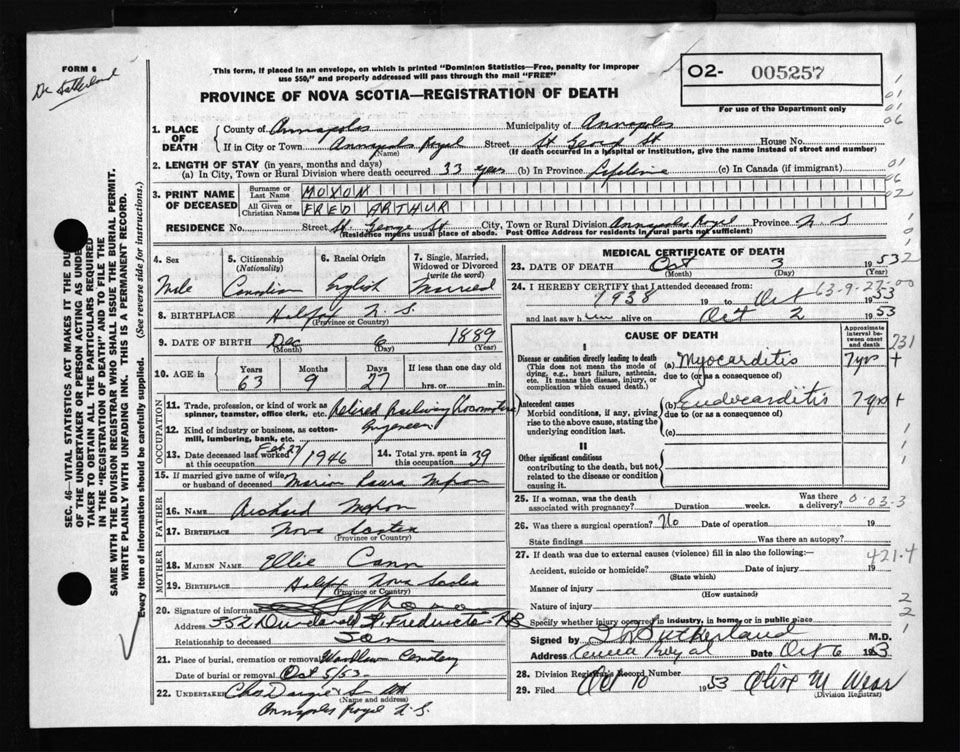 FORM 6
Dr Sutherland
This form, if placed in an envelope, on which is printed "Dominion Statistics—Free, penalty for improper
use $50," and properly addressed will pass through the mail "FREE"
PROVINCE OF NOVA SCOTIA—REGISTRATION OF DEATH
O2- 005257
For use of the Department only
1. PLACE OF DEATH
County of Annapolis Municipality of Annapolis
If in City or Town Annapolis Royal Street St George St House No.
(Name) (If death occurred in a hospital or institution, give the name instead of street and number)
2. LENGTH OF STAY (in years, months and days)
(a) In City, Town or Rural Division where death occurred 33 years (b) In Province Lifetime (c) In Canada (if immigrant)
3. PRINT NAME OF DECEASED
Surname or Last Name MOXON
All Given or Christian Names FRED ARTHUR
RESIDENCE No. Street St. George St City, Town or Rural Division Annapolis Royal Province N S
(Residence means usual place of abode. Post Office Address for residents in rural parts not sufficient)
4. Sex 5. Citizenship (Nationality) 6. Racial Origin 7. Single, Married, Widowed or Divorced (write the word)
Male Canadian English Married
8. BIRTHPLACE Halifax N. S.
(Province or Country)
9. DATE OF BIRTH Dec 6 1889
(Month) (Day) (Year)
10. AGE in Years Months Days If less than one day old
63 9 27 hrs. or min.
OCCUPATION
11. Trade, profession, or kind of work as spinner, teamster, office clerk, etc. Retired Railway (Locomotive)
12. Kind of industry or business, as cotton-mill, lumbering, bank, etc. Engineer
13. Date deceased last worked at this occupation Feb 27 1946 14. Total yrs. spent in this occupation 39
15. If married give name of wife or husband of deceased Marion Laura Moxon
FATHER
16. Name Richard Moxon
17. Birthplace Nova Scotia
(Province or Country)
MOTHER
18. MAIDEN NAME Ellie Cann
19. BIRTHPLACE Halifax Nova Scotia
(Province or Country)
20. Signature of informant
Address 352 St. Fredericton NB
Relationship to deceased Son
21. Place of burial, cremation or removal Woodlawn Cemetery
Date of burial or removal Oct 5/53.
22. UNDERTAKER Chas
(Name and address)
Annapolis Royal N. S.
MEDICAL CERTIFICATE OF DEATH
23. DATE OF DEATH Oct 3 1953
(Month) (Day) (Year)
24. I HEREBY CERTIFY that I attended deceased from:
1938 19 to Oct 1953
and last saw h im alive on Oct 2 1953
63-9-27-00
CAUSE OF DEATH
Approximate interval between onset and death
I
Disease or condition directly leading to death (a) Myocarditis 7 yrs +
(This does not mean the mode of dying, e.g., heart failure, asthenia, etc. It means the disease, injury, or complication which caused death.)
due to (or as a consequence of)
Antecedent causes (b) Endocarditis 7 yrs +
Morbid conditions, if any, giving rise to the above cause, stating the underlying condition last.
due to (or as a consequence of)
(c)
II
Other significant conditions
contributing to the death, but not related to the disease or condition causing it
25. If a woman, was the death associated with pregnancy? Duration weeks. Was there a delivery?
0-03-3
26. Was there a surgical operation? No Date of operation 19
State findings Was there an autopsy?
27. If death was due to external causes (violence) fill in also the following:—
421.4
Accident, suicide or homicide? Date of injury 19
(State which)
Manner of injury
(How sustained)
Nature of injury
Specify whether injury occurred in industry, in home, or in public place
Signed by Sutherland M.D.
Address Royal Date Oct 6 1953
28. Division Registrar's Record Number
29. Filed Oct 10 1953 Olive M
(Division Registrar)
SEC. 46—VITAL STATISTICS ACT MAKES IT THE
OF THE UNDERTAKER OR PERSON ACTING AS UNDER
TAKER TO OBTAIN ALL THE PARTICULARS REQUIRED
IN THE "REGISTRATION OF DEATH" AND TO FILE THE
SAME WITH THE DIVISION REGISTRAR WHO SHALL ISSUE THE BURIAL PERMIT.
WRITE PLAINLY WITH UNFADING INK. THIS IS A PERMANENT RECORD.
Every item of information should be carefully supplied. (See reverse side for instructions.)